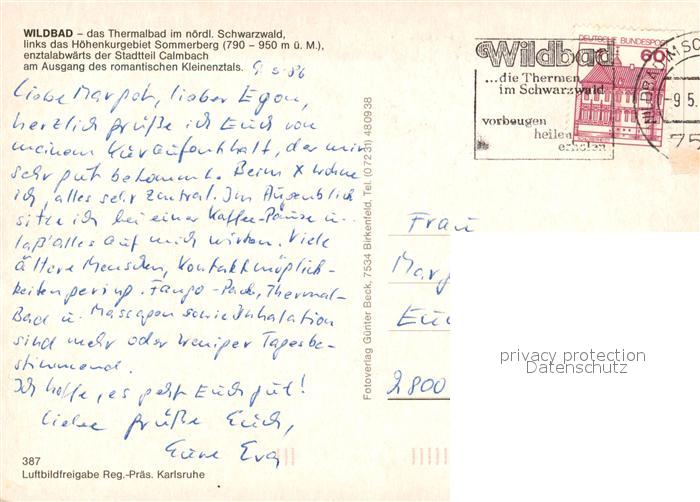 WILDBAD – das Thermalbad im nördl. Schwarzwald,
links das Höhenkurgebiet Sommerberg (790 – 950 m ü. M.),
enztalabwärts der Stadtteil Calmbach
am Ausgang des romantischen Kleinenztals.
9.5.86
Liebe Margot, lieber Egon,
herzlich grüße ich Euch von
meinem Kuraufenthalt, der mir
sehr gut bekommt. Beim x wohne
ich, alles sehr zentral. Im Augenblick
sitze ich bei einer Kaffee-Pause u.
laß' alles auf mich wirken. Viele
ältere Menschen, Kontaktmöglich-
keiten gering. Fango-Pack, Thermal-
Bad u. Massagen sowie Inhalation
sind mehr oder weniger Tagesbe-
stimmend.
Ich hoffe, es geht Euch gut!
Liebe Grüße Euch,
Eure Eva
387
Luftbildfreigabe Reg.-Präs. Karlsruhe
Fotoverlag Günter Beck, 7534 Birkenfeld, Tel. (07231) 480938
Wildbad
...die Thermen
im Schwarzwald
vorbeugen
heilen
erholen
DEUTSCHE BUNDESPOST
60
WILDBAD IM SC
-9.5.
75
Frau
Marg
2800
privacy protection
Datenschutz